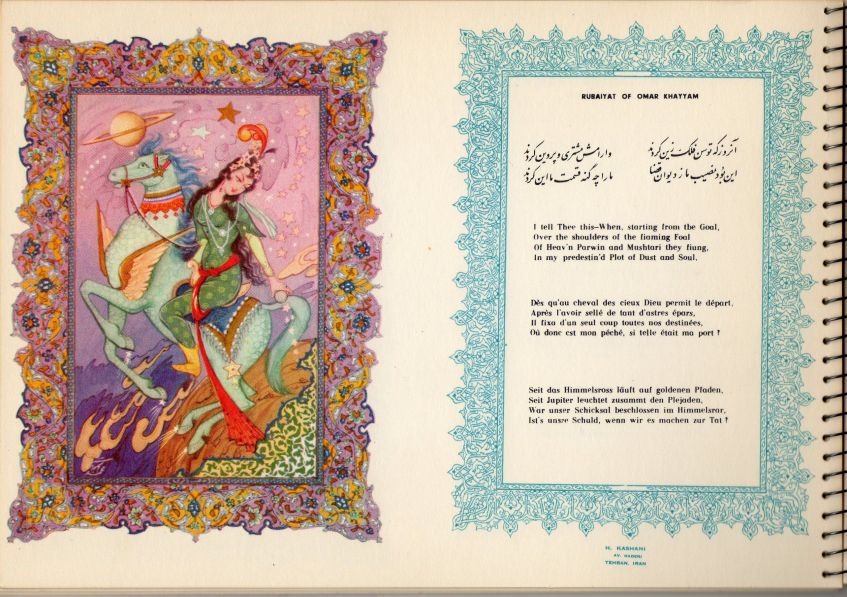 RUBAIYAT OF OMAR KHAYYAM
آنروز که توسن فلک زین کردند وارایش مشتری و پروین کردند
این بود نصیب ما ز دیوان قضا ما را چه گنه قسمت ما این کردند
I tell Thee this—When, starting from the Goal,
Over the shoulders of the fiaming Foal
Of Heav'n Parwin and Mushtari they fiung,
In my predestin'd Plot of Dust and Soul.
Dès qu'au cheval des cieux Dieu permit le départ,
Après l'avoir sellé de tant d'astres épars,
Il fixa d'un seul coup toutes nos destinées,
Où donc est mon péché, si telle était ma port ?
Seit das Himmelsross läuft auf goldenen Pfaden,
Seit Jupiter leuchtet zusammt den Plejaden,
War unser Schicksal beschlossen im Himmelsrar,
Ist's unsre Schuld, wenn wir es machen zur Tat ?
H. KASHANI
TEHRAN, IRAN